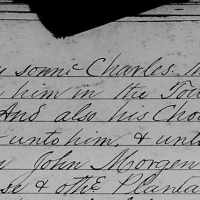 y sonne Charles M
him in the Tow
And also his Cho
unto him, & unto
John Morgen
se & othe Planta